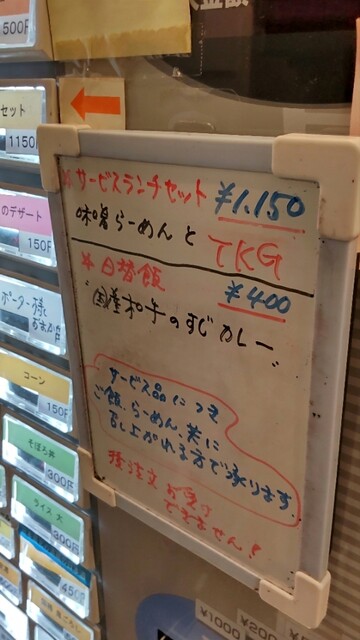 500円
セット
1150
のデザート
150円
コーン
150円
そぼろ丼
300円
ライス 大
300円
＊サービスランチセット ¥1.150
味噌らーめんと TKG
＊日替飯 ¥400
"国産和牛のすじカレー"
サービス品につき
ご飯、らーめん、共に
召し上がれる方で承ります。
後注文お受け
できません！
¥1000